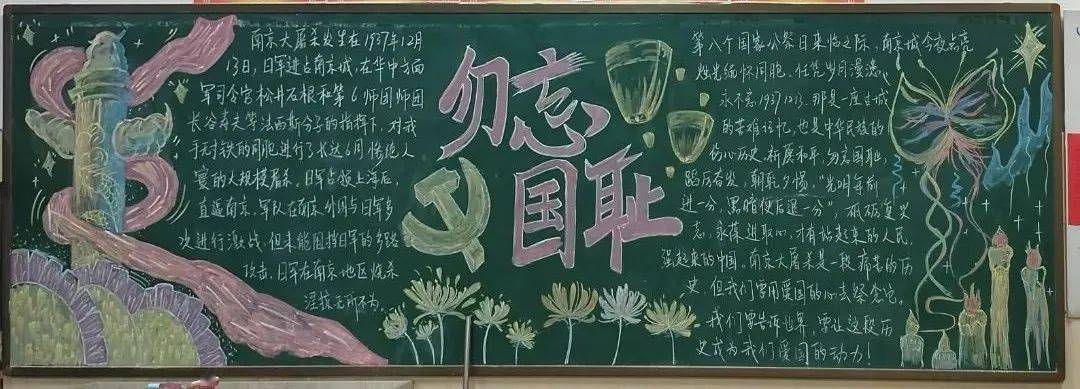 南京大屠杀发生在1937年12月
13日，日军进占南京城，在华中方面
军司令官松井石根和第6师团师团
长谷寿夫等法西斯分子的指挥下，对我
手无寸铁的同胞进行了长达6周惨绝人
寰的大规模屠杀。日军占领上海后，
直逼南京，军队在南京外围与日军多
次进行激战，但未能阻挡日军的多路
攻击。日军在南京地区烧杀
淫掠无所不为。
勿忘
国耻
第八个国家公祭日来临之际，南京城今夜点亮
烛光缅怀同胞。任凭岁月漫漶
永不忘1937.12.13。那是一座古城
的苦难记忆，也是中华民族的
伤心历史。祈愿和平，勿忘国耻，
踏厉奋发，朝乾夕惕，“光明每前
进一分，黑暗便后退一分”，砥砺复兴
志，永葆进取心，才有站起来的人民，
强起来的中国，南京大屠杀是一段痛苦的历
史，但我们要用爱国的心去祭念它。
我们要告诉世界，要让这段历
史成为我们爱国的动力！